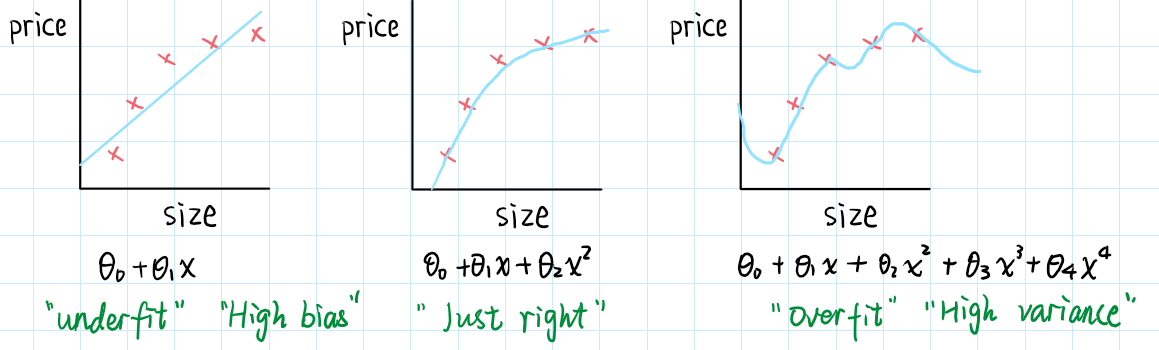 price
size
θ₀ + θ₁x
"underfit" "High bias"
price
size
θ₀ + θ₁x + θ₂x²
"Just right"
price
size
θ₀ + θ₁x + θ₂x² + θ₃x³ + θ₄x⁴
"Overfit" "High variance"